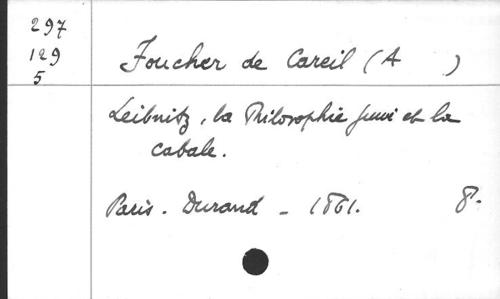 297
129
5
Foucher de Careil (A )
Leibnitz, la Philosophie juive et la
cabale.
Paris. Durand - 1861. 8.